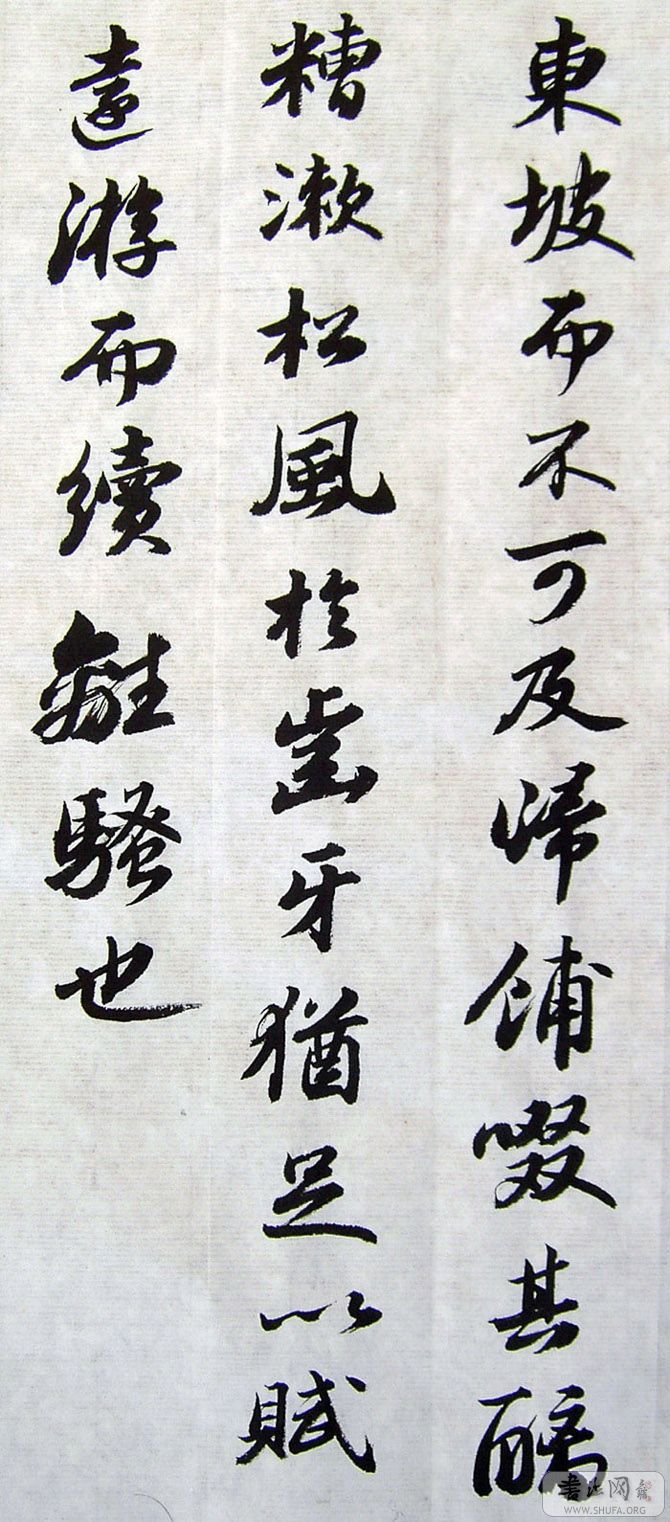 東坡而不可及歸餔啜其醨
糟漱松風於齒牙猶足以賦
遠游而續離騷也
書法网
WWW.SHUFA.ORG